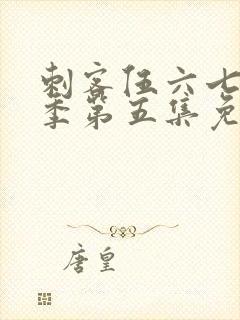 刺客伍六七
季第五集免
唐皇